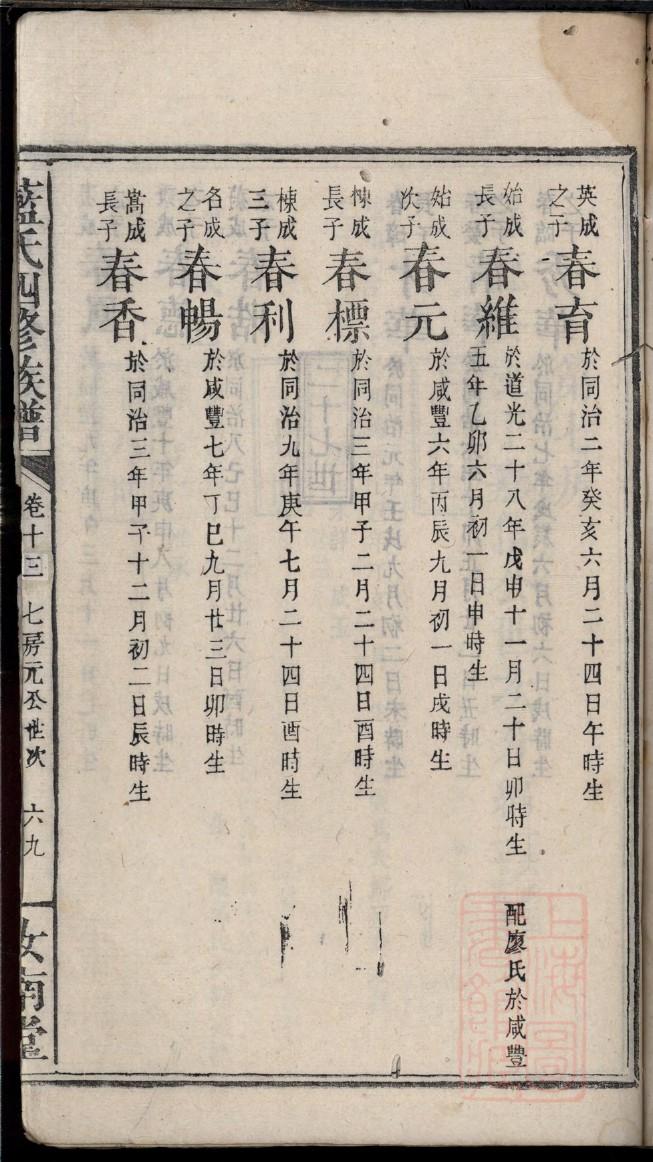 英成
之子
春育
於同治二年癸亥六月二十四日午時生
始成
長子
春維
於道光二十八年戊申十一月二十日卯時生 配廖氏於咸豐
五年乙卯六月初一日申時生
始成
次子
春元
於咸豐六年丙辰九月初一日戌時生
棟成
長子
春標
於同治三年甲子二月二十四日酉時生
棟成
三子
春利
於同治九年庚午七月二十四日酉時生
名成
之子
春暢
於咸豐七年丁巳九月廿三日卯時生
嵩成
長子
春香
於同治三年甲子十二月初二日辰時生
藍氏四修族譜
卷十三 七房元公世次 六九
汝南堂
上海圖